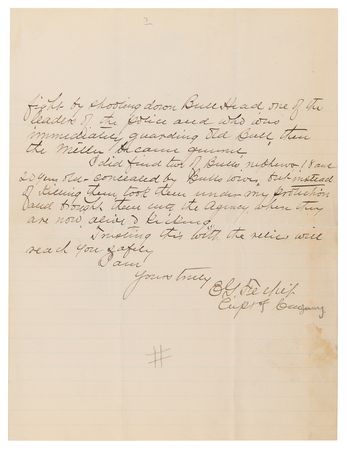 2
fight by shooting down Bull Head one of the
leaders of the police and who was
immediately guarding Old Bull, then
the Melee became general.
I did find two of Bulls nephews 18 and
20 years old - concealed by Bulls wives, but instead
of killing them took them under my protection
and brought them into the Agency where they
are now alive & kicking,
Trusting this with the relic will
reach you safely
I am
Yours truly
E. G. Fechet
Capt of Cavalry
#